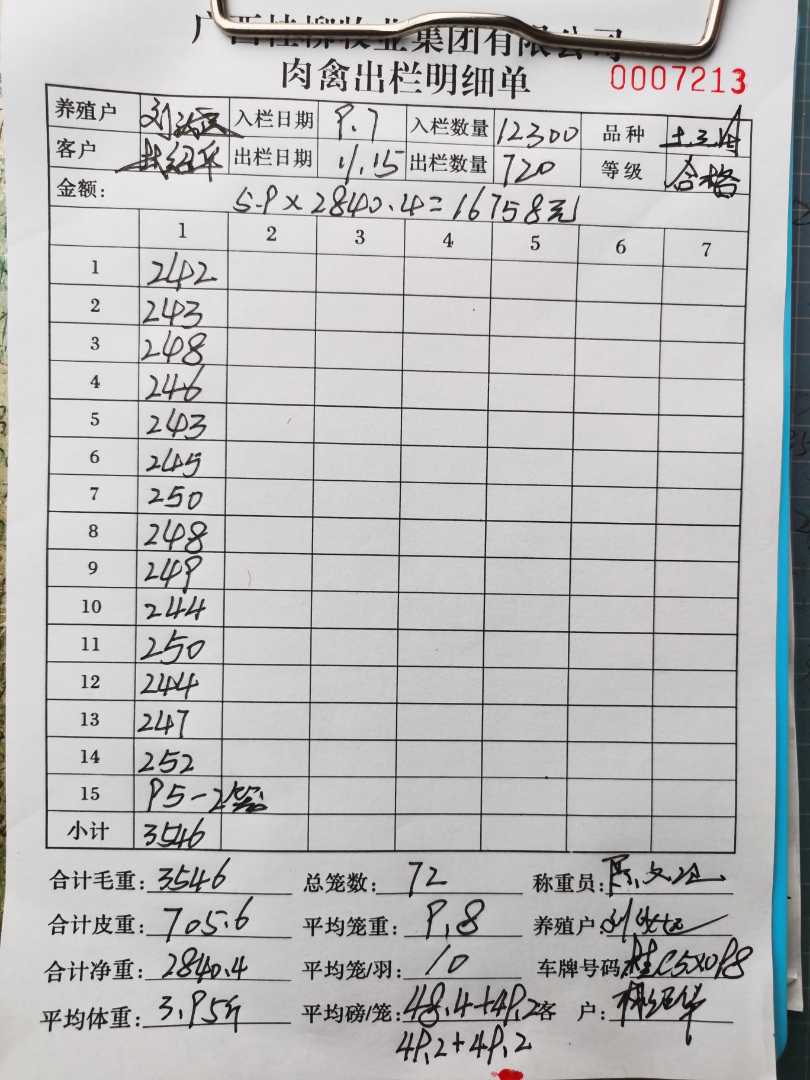 广西桂柳牧业集团有限公司
肉禽出栏明细单 0007213
养殖户 入栏日期 9.7 入栏数量 12300 品种
客户 出栏日期 11.15 出栏数量 720 等级 合格
金额: 5.9×2840.4=16758元
1 2 3 4 5 6 7
1 242
2 243
3 248
4 246
5 243
6 245
7 250
8 248
9 249
10 244
11 250
12 244
13 247
14 252
15 95-2笼
小计 3546
合计毛重: 3546 总笼数: 72 称重员:
合计皮重: 705.6 平均笼重: 9.8 养殖户:
合计净重: 2840.4 平均笼/羽: 10 车牌号码: 桂C5X098
平均体重: 3.95斤 平均磅/笼: 48.4+49.2 客 户:
49.2+49.2